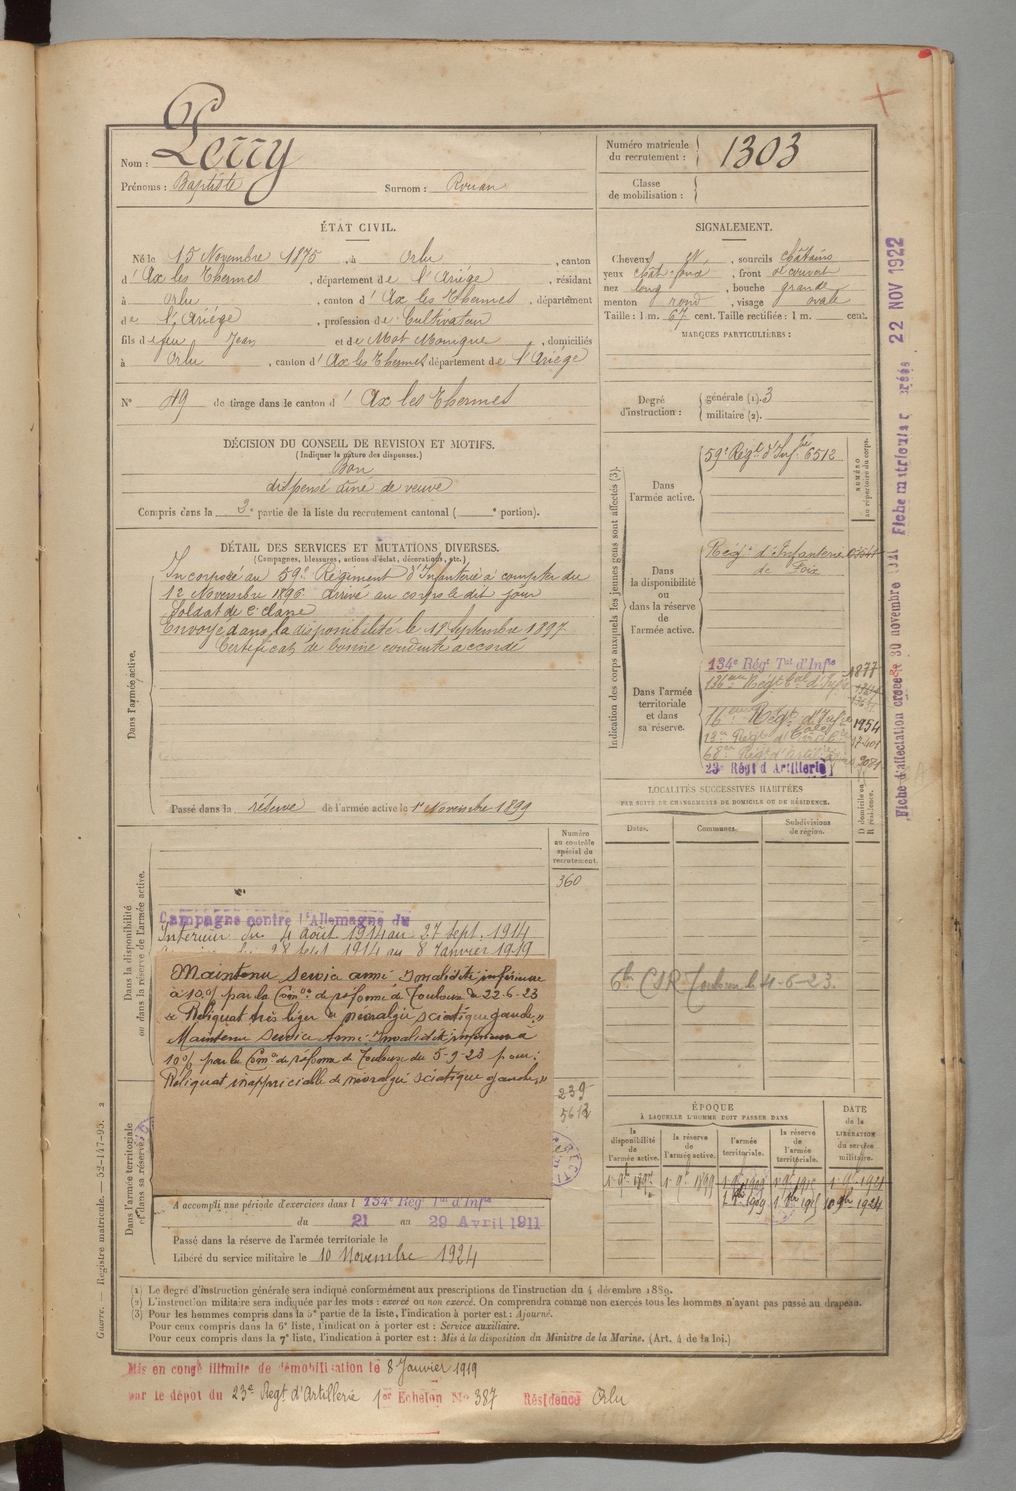 Nom : Perry
Prénoms : Baptiste Surnom : Rouan
Numéro matricule du recrutement : 1303
Classe de mobilisation :
ÉTAT CIVIL.
Né le 15 Novembre 1875, à Orlu, canton
d'Ax les Thermes, département de l'Ariège, résidant
à Orlu, canton d'Ax les Thermes, département
de l'Ariège, profession de Cultivateur
fils de feu Jean et de Mot Monique, domiciliés
à Orlu, canton d'Ax les Thermes département de l'Ariège
N° 49 de tirage dans le canton d'Ax les Thermes
SIGNALEMENT.
Cheveux et, sourcils châtains
yeux chât foncé, front découvert
nez long, bouche grande
menton rond, visage ovale
Taille : 1 m. 67 cent. Taille rectifiée : 1 m. cent.
MARQUES PARTICULIÈRES :
Degré d'instruction : générale (1). 3
militaire (2).
DÉCISION DU CONSEIL DE REVISION ET MOTIFS.
(Indiquer la nature des dispenses.)
Bon
dispensé aîné de veuve
Compris dans la 2e partie de la liste du recrutement cantonal ( e portion).
DÉTAIL DES SERVICES ET MUTATIONS DIVERSES.
(Campagnes, blessures, actions d'éclat, décorations, etc.)
Dans l'armée active.
Incorporé au 59e Régiment d'Infanterie à compter du
12 Novembre 1896 arrivé au corps le dit jour
Soldat de 2e classe
Envoyé dans la disponibilité le 18 Septembre 1897
Certificat de bonne conduite accordé
Passé dans la réserve de l'armée active le 1er Novembre 1899
Indication des corps auxquels les jeunes gens sont affectés (3).
NUMÉRO au répertoire du corps.
Dans l'armée active.
59e Régt d'Inf. 6512
Dans la disponibilité ou dans la réserve de l'armée active.
Régt d'Infanterie
de Foix
Dans l'armée territoriale et dans sa réserve.
134e Régt Tal d'Infie 1877
136eme Régt tal d'Infie
16eme Régt d'Inf 1954
68eme Régt d'Artillerie
23e Régt d'Artillerie
LOCALITÉS SUCCESSIVES HABITÉES
PAR SUITE DE CHANGEMENTS DE DOMICILE OU DE RÉSIDENCE.
Dates. Communes. Subdivisions de région. D domicile ou R résidence.
6e CSR Toulouse le 4-6-23.
Dans la disponibilité ou dans la réserve de l'armée active.
Numéro au contrôle spécial du recrutement.
360
Campagne contre l'Allemagne du
Intérieur du 4 août 1914 au 27 sept. 1914
28 sept 1914 au 8 Janvier 1919
Maintenu service armé Invalidité inférieure
à 10% par la Comon de réforme de Toulouse du 22-6-23
« Reliquat très léger de névralgie sciatique gauche. »
Maintenu service Armé Invalidité inférieure à
10% par la Comon de réforme de Toulouse du 5-9-23 pour :
Reliquat inappréciable de névralgie sciatique gauche. »
239
5612
Dans l'armée territoriale et dans sa réserve.
A accompli une période d'exercices dans l 134e Régt Tal d'Infie
du 21 au 29 Avril 1911
Passé dans la réserve de l'armée territoriale le
Libéré du service militaire le 10 Novembre 1924
ÉPOQUE
À LAQUELLE L'HOMME DOIT PASSER DANS
la disponibilité de l'armée active. la réserve de l'armée active. l'armée territoriale. la réserve de l'armée territoriale.
DATE de la LIBÉRATION du service militaire.
1er 9bre 1897 1er 9bre 1899 1er 9bre 1909 1er 9bre 1915 1er 9bre 1921
1er 8bre 1909 1er 8bre 1915 10 9bre 1924
(1) Le degré d'instruction générale sera indiqué conformément aux prescriptions de l'instruction du 4 décembre 1889.
(2) L'instruction militaire sera indiquée par les mots : exercé ou non exercé. On comprendra comme non exercés tous les hommes n'ayant pas passé au drapeau.
(3) Pour les hommes compris dans la 5e partie de la liste, l'indication à porter est : Ajourné.
Pour ceux compris dans la 6e liste, l'indication à porter est : Service auxiliaire.
Pour ceux compris dans la 7e liste, l'indication à porter est : Mis à la disposition du Ministre de la Marine. (Art. 4 de la loi.)
Mis en congé illimité de démobilisation le 8 Janvier 1919
par le dépôt du 23e Régt d'Artillerie 1er Echelon No 387 Résidence Orlu
Guerre. — Registre matricule. — 52-147-95. 2
Fiche d'affectation créée le 30 novembre Fiche matricule créée 22 NOV 1922